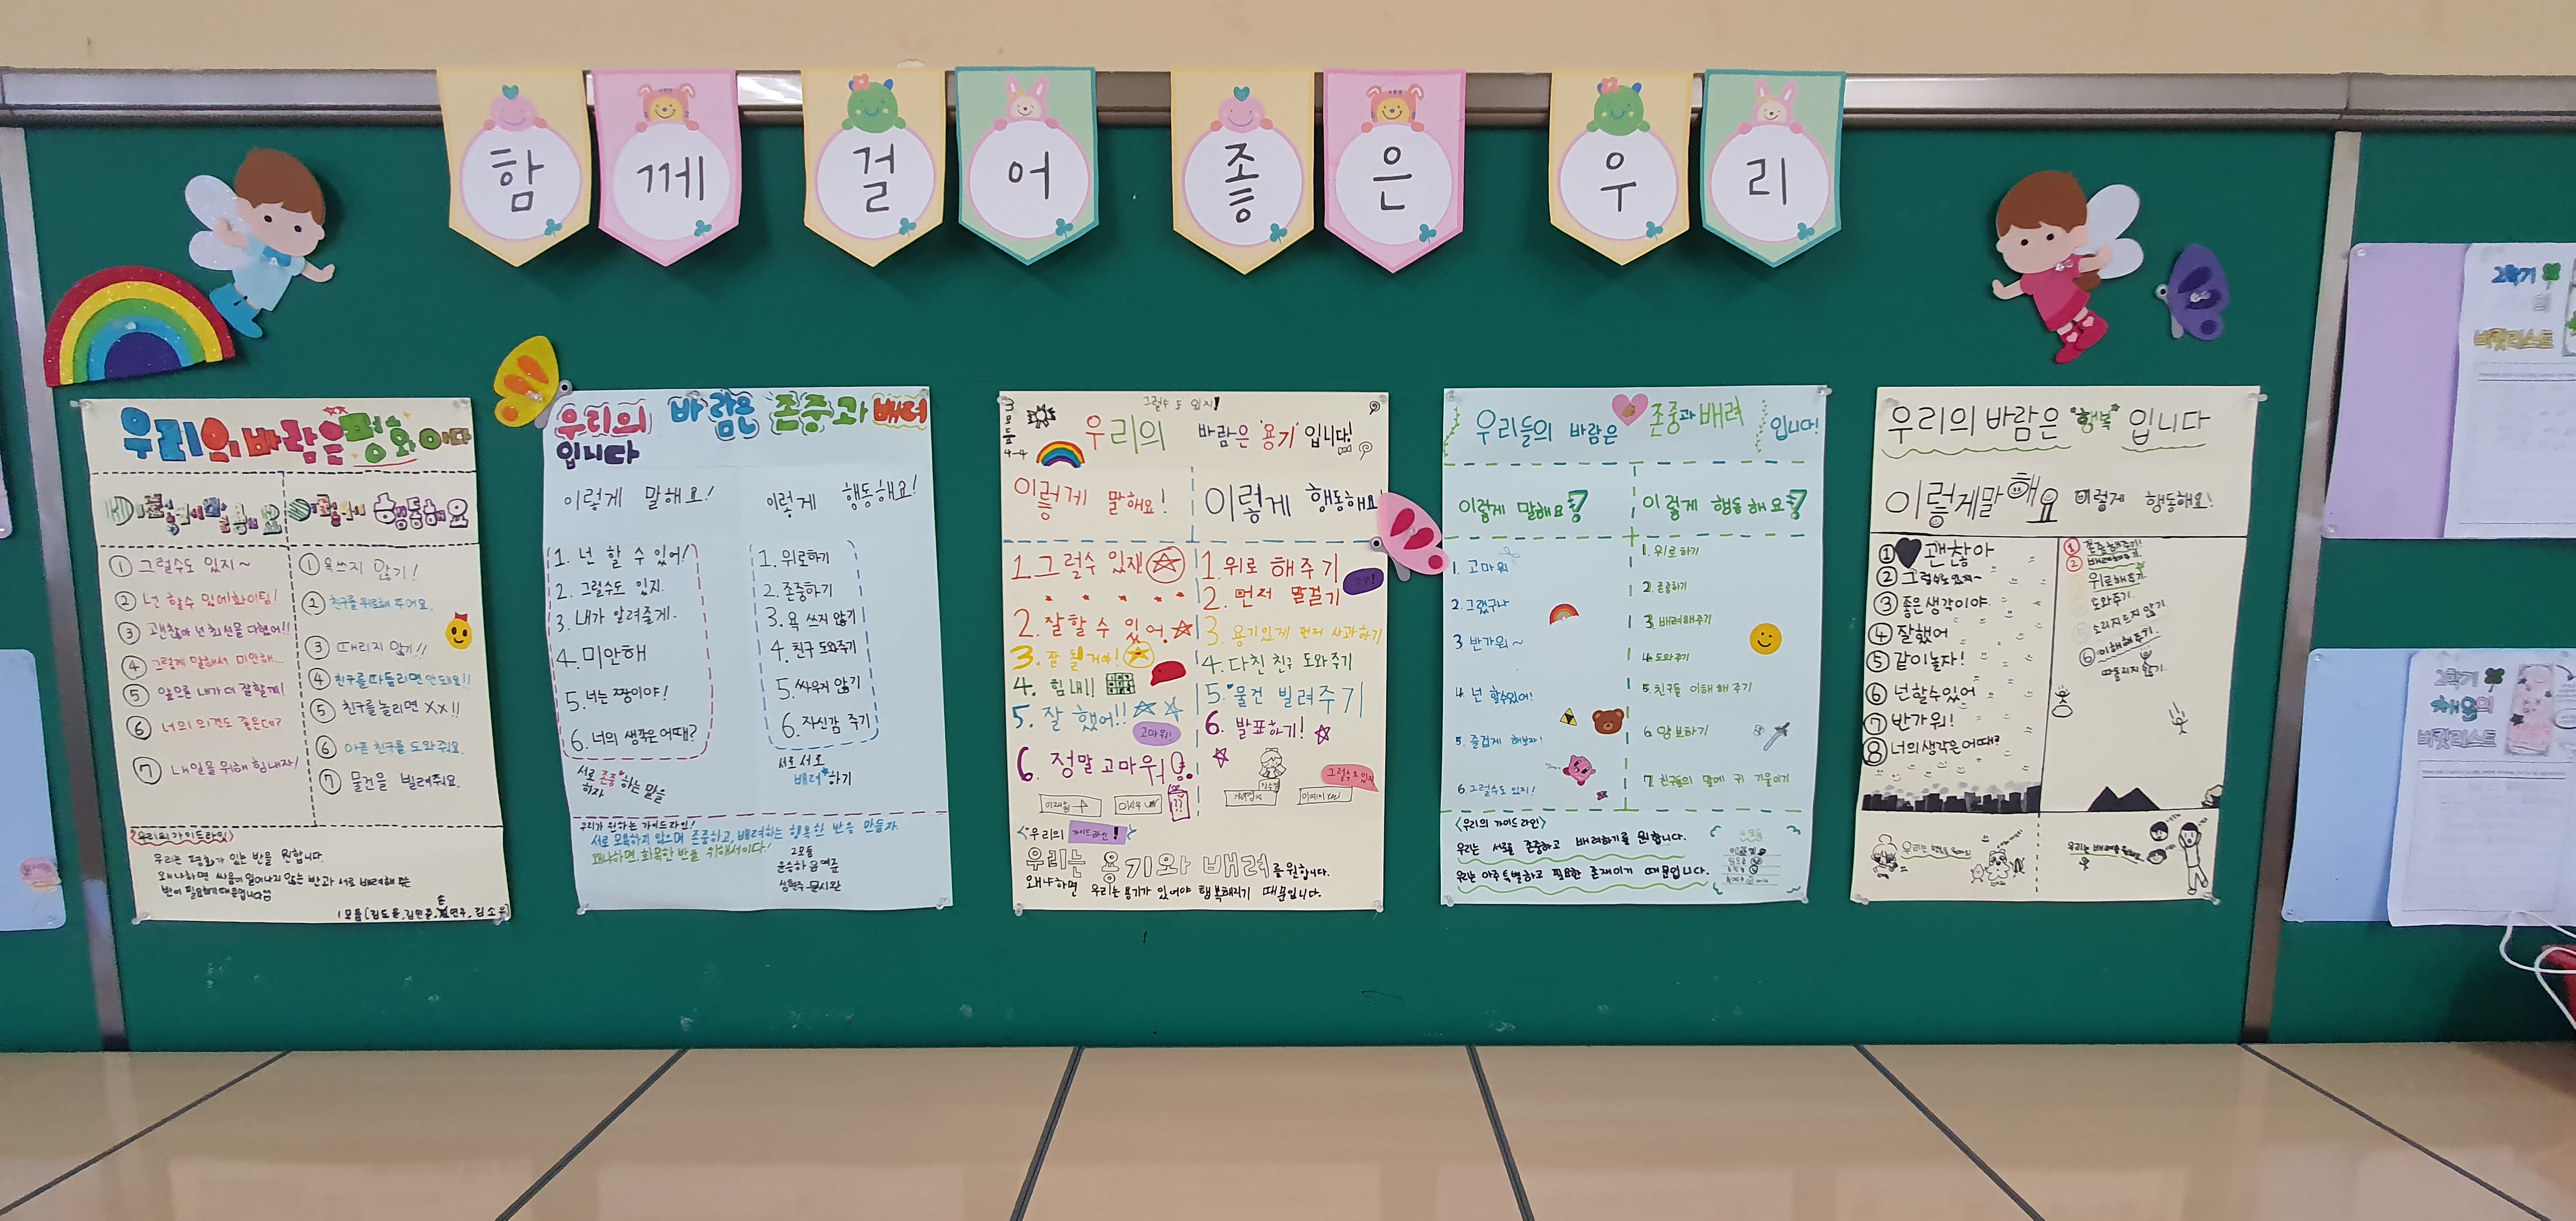 함께 걸어 좋은 우리
우리의 바람은 평화이다
이렇게 말해요
이렇게 행동해요
① 그럴수도 있지~
② 넌 할수 있어!화이팅!
③ 괜찮아 넌 최선을 다했어!!
④ 그렇게 말해서 미안해...
⑤ 앞으론 내가 더 잘할게!
⑥ 너의 의견도 좋은데?
⑦ 내일을 위해 힘내자!
① 욕쓰지 않기!
② 친구를 위로해 주어요.
③ 때리지 않기!!
④ 친구를 따돌리면 안돼요!!
⑤ 친구를 놀리면 XX!!
⑥ 아픈 친구를 도와줘요.
⑦ 물건을 빌려줘요.
우리의 가이드라인
우리는 평화가 있는 반을 원합니다.
왜냐하면 싸움이 일어나지 않는 반과 서로 배려해 주는
반이 필요하기 때문입니다
1모둠
우리의 바람은 존중과 배려
입니다
이렇게 말해요!
이렇게 행동해요!
1. 넌 할 수 있어!
2. 그럴수도 있지.
3. 내가 알려줄게.
4. 미안해
5. 너는 짱이야!
6. 너의 생각은 어때?
서로 존중하는 말을
하자
1. 위로하기
2. 존중하기
3. 욕 쓰지 않기
4. 친구 도와주기
5. 싸우지 않기
6. 자신감 주기
서로 서로
배려하기
우리가 원하는 가이드라인!
서로 모욕하지 않으며 존중하고, 배려하는 행복한 반을 만들자.
왜냐하면, 화목한 반을 위해서이다!
2모둠
3모둠
4-4
그럴수 도 있지!
우리의 바람은 '용기' 입니다!
이렇게 말해요!
이렇게 행동해요!
1. 그럴수 있지!
2. 잘할 수 있어.
3. 잘 될거야!
4. 힘내!!
5. 잘 했어!!
고마워!
6. 정말 고마워
1. 위로 해주기
2. 먼저 말걸기
3. 용기있게 먼저 사과하기
4. 다친 친구 도와주기
5. 물건 빌려주기
6. 발표하기!
그럴수도 있지
<우리의 가이드라인!>
우리는 용기와 배려를 원합니다.
왜냐하면 우리는 용기가 있어야 행복해지기 때문입니다.
우리들의 바람은 존중과 배려 입니다!
이렇게 말해요?
이렇게 행동해요?
1. 고마워
2. 그랬구나
3 반가워~
4. 넌 할수있어!
5. 즐겁게 해보자!
6. 그럴수도 있지!
1. 위로 하기
2. 존중하기
3. 배려해주기
4. 도와주기
5. 친구들 이해 해 주기
6. 양보하기
7. 친구들의 말에 귀 기울이기
<우리의 가이드라인>
우리는 서로를 존중하고 배려하기를 원합니다.
우리는 아주 특별하고 필요한 존재이기 때문입니다.
우리의 바람은 "행복" 입니다
이렇게말해요
이렇게 행동해요!
① 괜찮아
② 그럴수도 있지~
③ 좋은 생각이야
④ 잘했어
⑤ 같이놀자!
⑥ 넌할수있어
⑦ 반가워!
⑧ 너의 생각은 어때?
① 존중해주기!
② 배려해주기
위로해주기
도와주기
소리지르지 않기
⑥ 이해해주기
따돌리지 않기
2학기
의
버킷리스트
2학기
채움의
버킷리스트